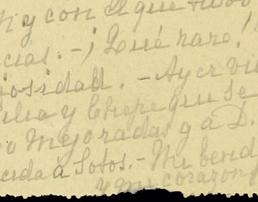 y con el que tuvo
cias. - ¡Qué raro!
iosidad. - Ayer vi
lia y Chepe que se
mejoradas y a D.
cida a Sotos. - Mi bend
y mi corazon